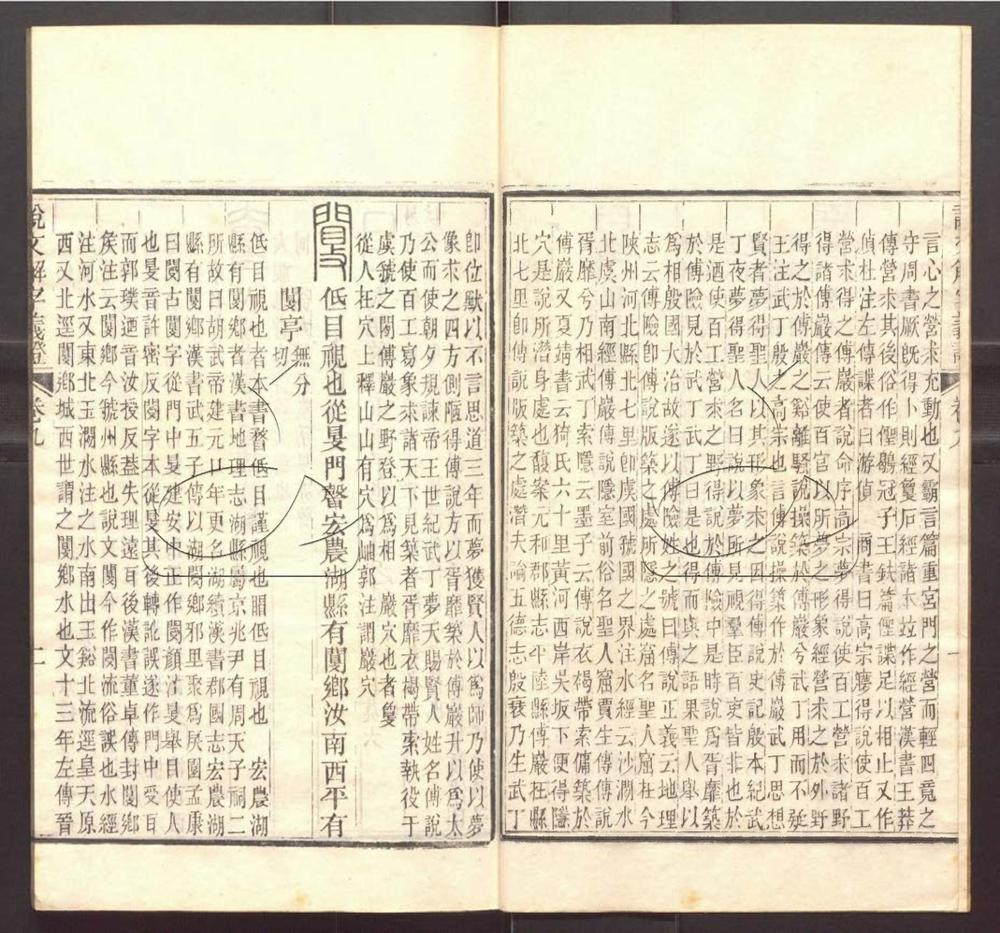 言心之營求充動也又霸言篇重宮門之營而輕四竟之
守周書厥旣得卜則經敻石經諸本竝作經營漢書王莽
傳營求其後俗作俚鶡冠子王鈇篇俚諜足以相止又作
偵杜注左傳諜者曰游偵　商書曰高宗夢得說使百工
營求得之傅巖者說命序高宗夢得說使百工營求諸野
得諸傅巖傳云使百官以所夢之形象經營求之於外野
得之於傅巖之谿離騷說操築於傅巖兮武丁用而不疑
王注武丁之高宗也言傅說操築作於傅巖武丁思想
賢者夢得聖人以其形象求之因得傅說史記殷本紀武
丁夜夢得聖人名曰說以夢所見視羣臣百吏皆非也於
是迺使百工營求之野得說於傅險中是時說爲胥靡築
於傅險見於武丁武丁曰是也得而與之語果聖人舉以
爲相殷國大治故遂以傅險姓之號曰傅說正義云地理
志云傅險卽傅說版築之處所隱之處窟名聖人窟在今
陝州河北縣北七里卽虞國虢國之界注水經云沙澗水
北虞山南經傅巖傅說隱室前俗名聖人窟賈生傳傅說
胥靡兮乃相武丁索隱云墨子云傅說衣褐帶索傭築於
傅巖又夏靖書云猗氏六十里黃河西岸吳坂下便得隱
穴是說所潛身處也馥案元和郡縣志平陸縣傅巖在縣
北七里卽傅說版築之處潛夫論五德志殷衰乃生武丁
卽位默以不言思道三年而夢獲賢人以爲師乃使以夢
像求之四方側陋得傅說方以胥靡築於傅巖升以爲太
公而使朝夕規諫帝王世紀武丁夢天賜賢人姓名傅說
乃使百工寫象求諸天下見築者胥靡衣褐帶索執役于
虞虢之閒傅巖之野登以爲相　巖穴也者敻
從人在穴上釋山山有穴爲岫郭注謂巖穴
閺低目視也從㚇門聲弘農湖縣有閺鄉汝南西平有
閺亭無分切
低目視也者本書瞀低目謹視也䀛低目視也　宏農湖
縣有閺鄉者漢書地理志湖縣屬京兆尹有周天子祠二
所故曰胡武帝建元年更名湖續漢書郡國志宏農湖
縣有閺鄉漢書武五子傳以湖閺鄉邪里聚爲戾園孟康
曰閺古閺字從門中㚇建安中正作閺顏注㚇舉目使人
也㚇音許密反閺字本從㚇其後轉訛誤遂作門中受耳
而郭璞迺音汝授反蓋失理遠耳後漢書董卓傳封閺鄉
矦注云閺鄉今虢州縣也說文閺今作閿流俗誤也水經
注河水又東北玉澗水注之水南出玉谿北流逕皇天原
西又北逕閺鄉城西世謂之閺鄉水也文十三年左傳晉
說文解字義證　卷九　二